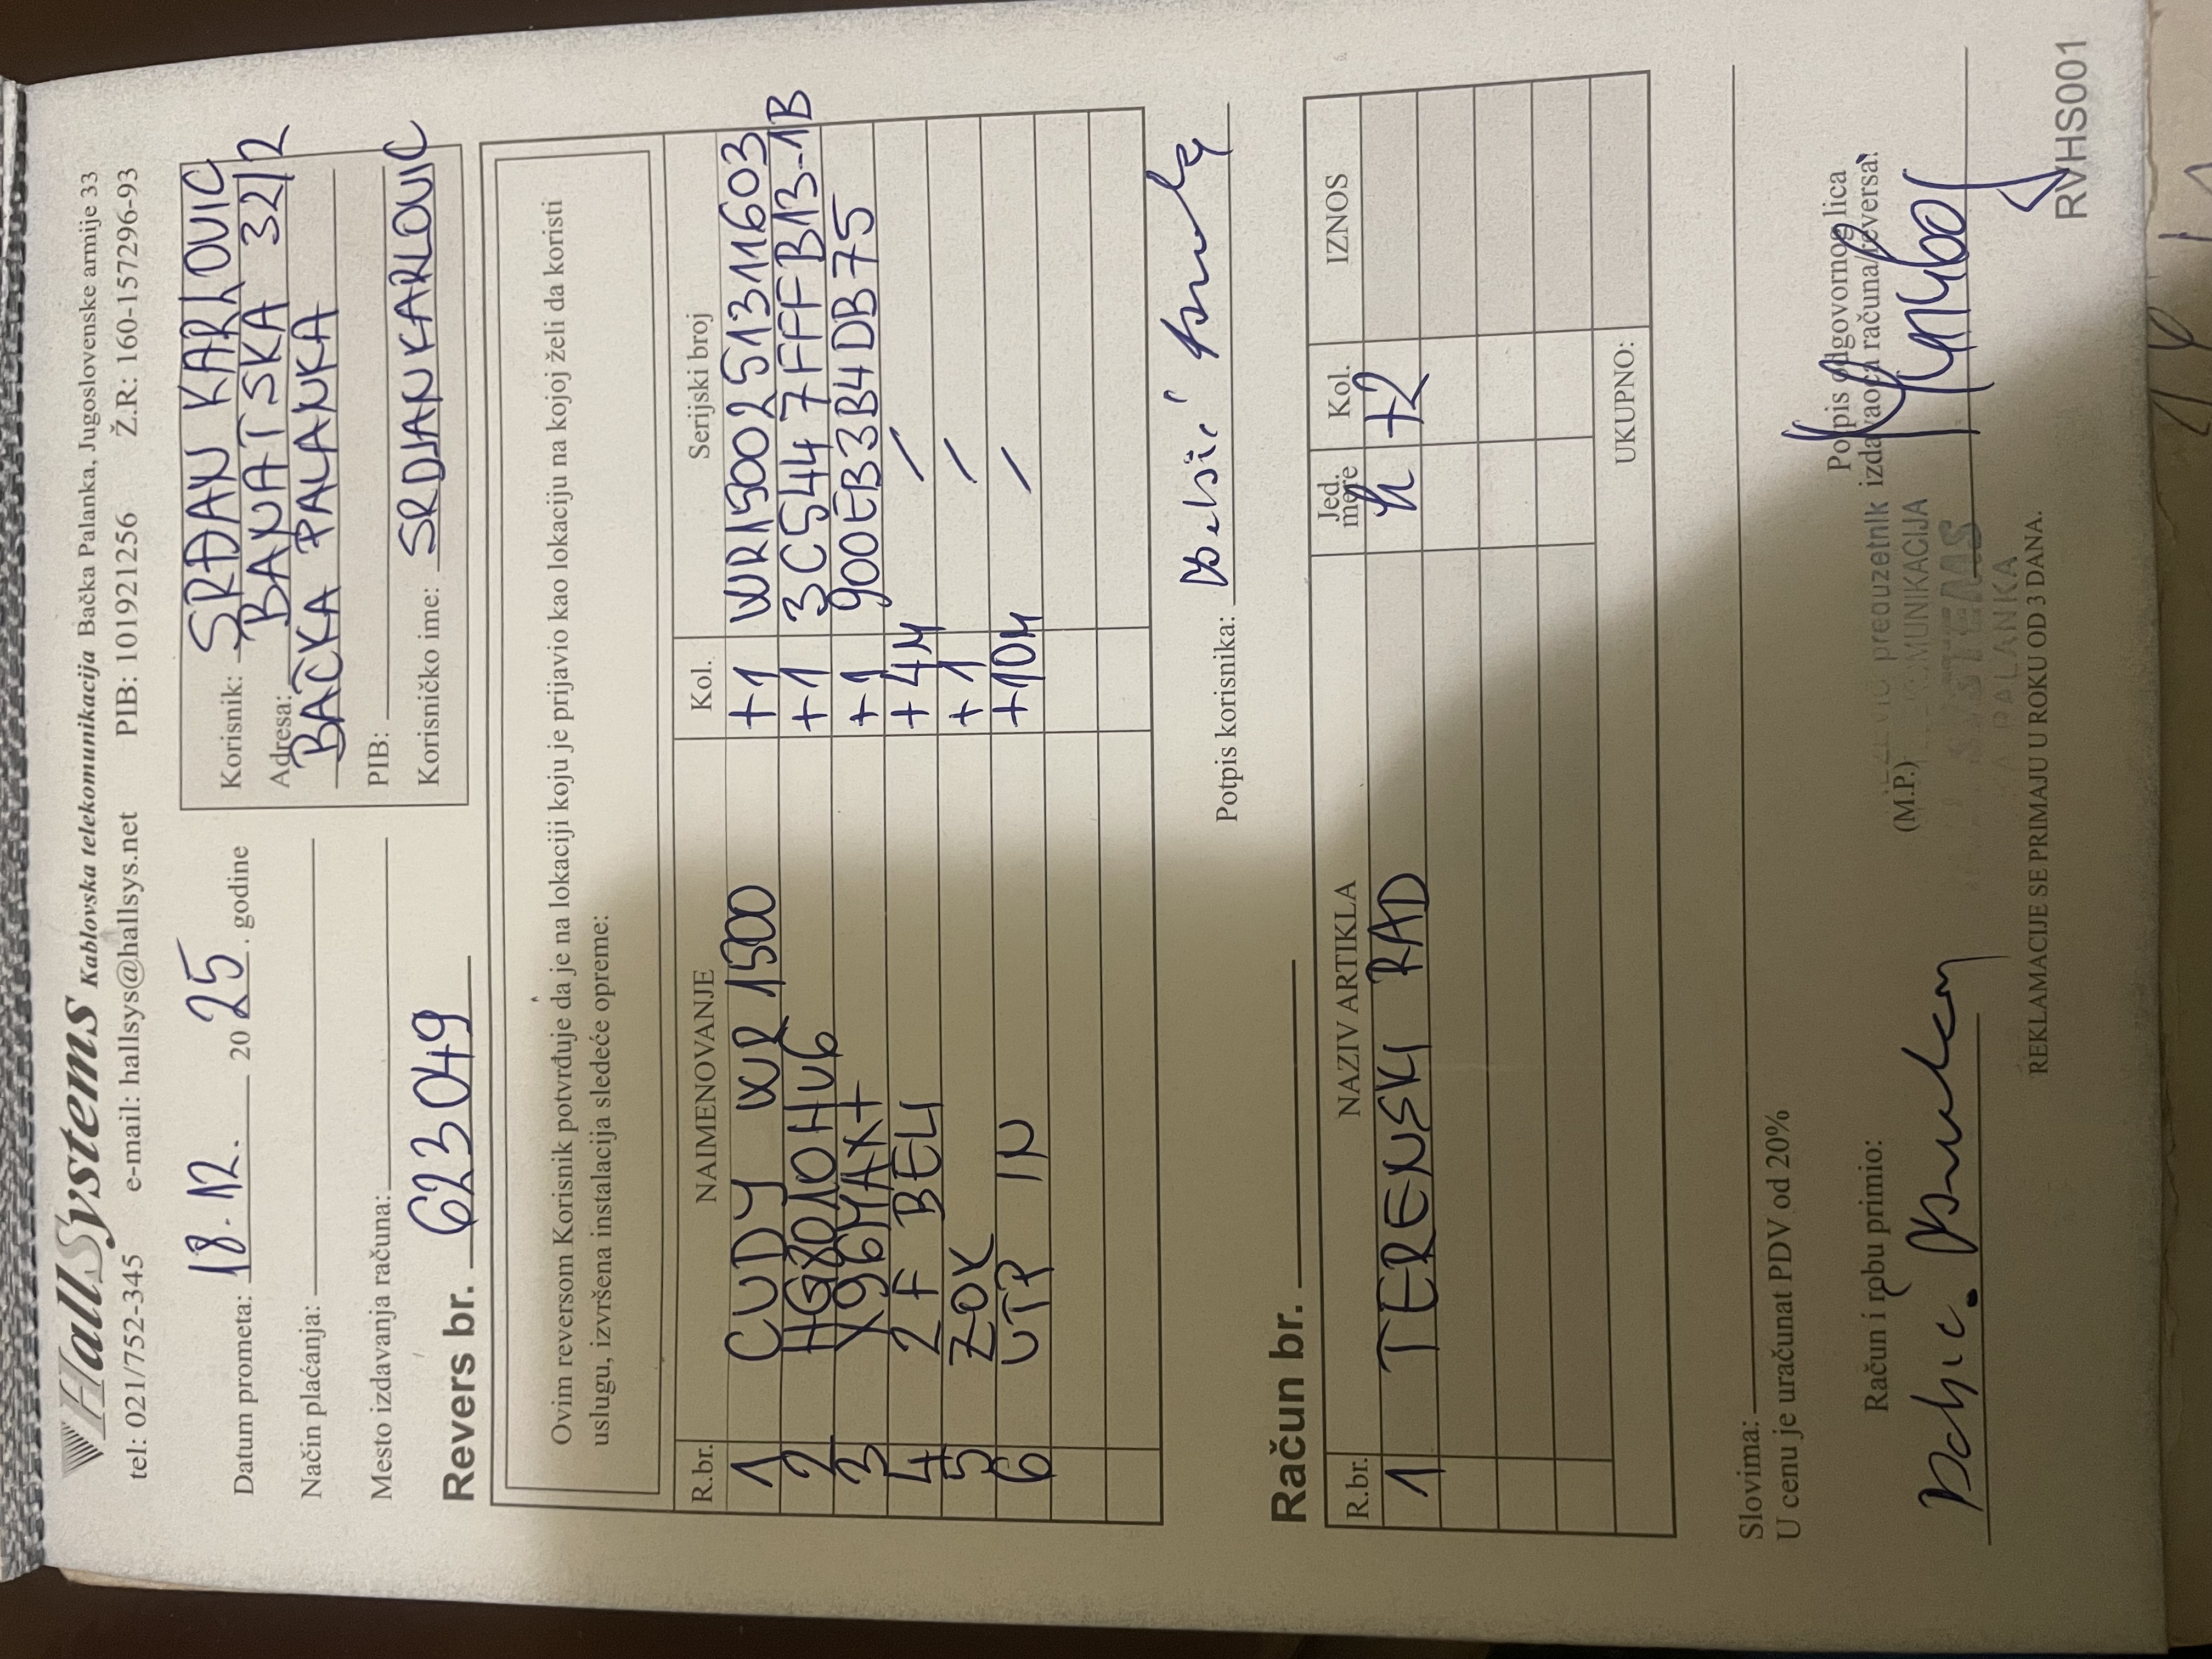 HallSystems Kablovska telekomunikacija Bačka Palanka, Jugoslovenske armije 33
tel: 021/752-345 e-mail: hallsys@hallsys.net PIB: 101921256 Ž.R: 160-157296-93
Datum prometa: 18.12. 20 25. godine
Način plaćanja:
Mesto izdavanja računa:
Revers br. 623049
Korisnik: SRĐAN KARLOVIĆ
Adresa: BANATSKA 32/2
BAČKA PALANKA
PIB:
Korisničko ime: SRDJANKARLOVIC
Ovim reversom Korisnik potvrđuje da je na lokaciji koju je prijavio kao lokaciju na kojoj želi da koristi
uslugu, izvršena instalacija sledeće opreme:
R.br. NAIMENOVANJE Kol. Serijski broj
1 CUDY WR 1500 +1 WR1500251311603
2 HG8010HV6 +1 3C5447FFFB13-1B
3 X96MAX+ +1 900EB3B4DB75
4 2F BELI +4M /
5 ZOK +1 /
6 UTP IN +10M /
Potpis korisnika:
Račun br.
R.br. NAZIV ARTIKLA Jed. mere Kol. IZNOS
1 TERENSKI RAD h +2
UKUPNO:
Slovima:
U cenu je uračunat PDV od 20%
Račun i robu primio:
(M.P.)
Potpis odgovornog lica
izdavaoca računa/reversa:
preduzetnik
SYSTEMS
PALANKA
REKLAMACIJE SE PRIMAJU U ROKU OD 3 DANA.
RVHS001